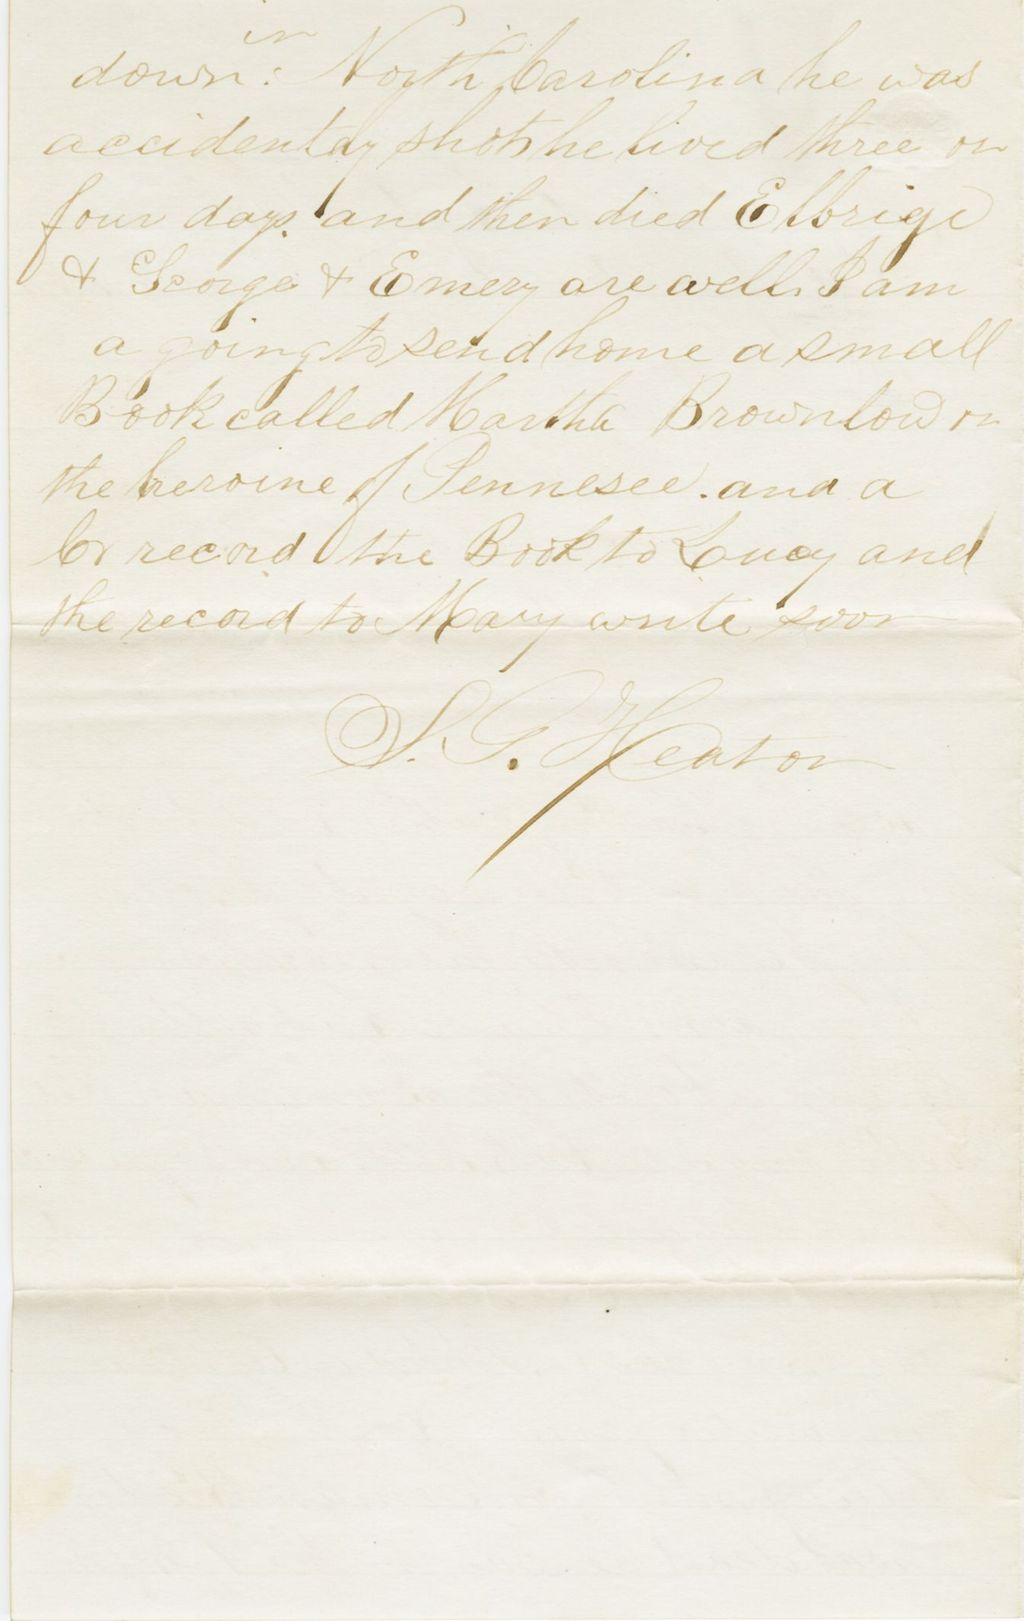 in
down: North Carolina he was
accidentay shot he lived three or
four days. and then died Elbrige
& George & Emery are well. I am
a going to send home a small
Book called Martha Brownlow or
the heroine of Tennesee. and a
Co record the Book to Loucy and
the record to Mary write soon
S. G. Heaton